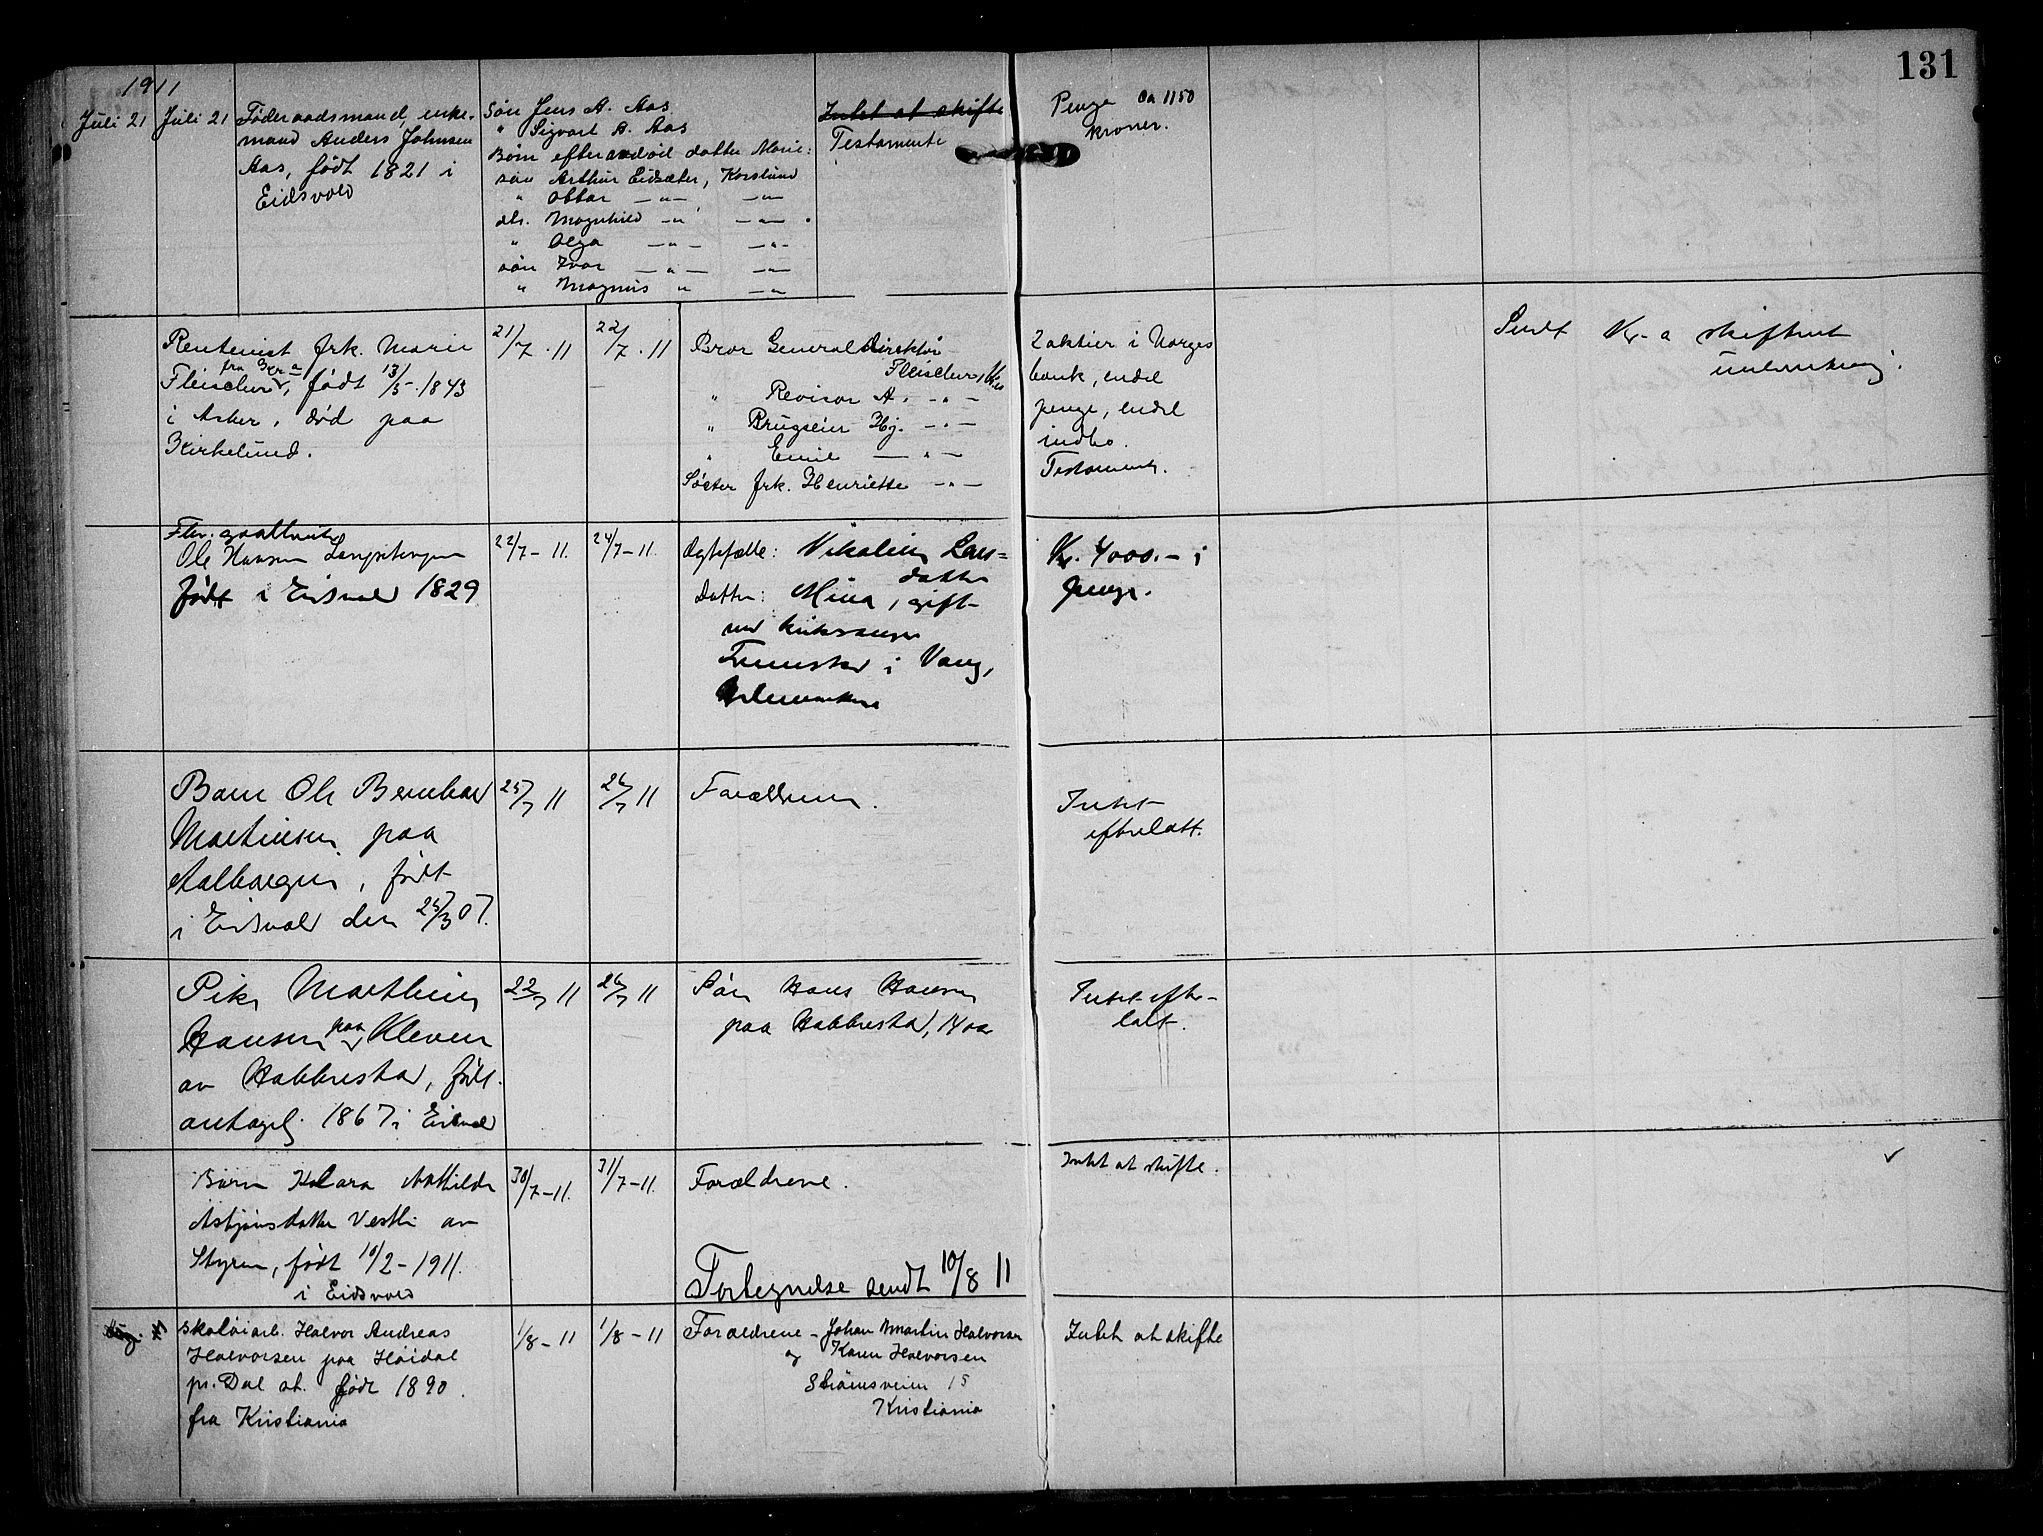 131
1911
Juli 21 Juli 21
Føderaadsmand, enke-
mand Anders Johnsen
Aas, født 1821 i
Eidsvold
Søn Jens A. Aas
" Sigvart A. Aas
Børn efter avdød datter Marie:
søn Arthur Eidsæter, Korslund
" Ottar — " — — " —
dtr. Magnhild — " — — " —
" Olga — " — — " —
søn Ivar — " — — " —
" Magnus " — " —
Intet at skifte
Testamente
Penge ca 1150
kroner.
Rentenist frk. Marie
fra Kr.a
Fleischer, født 13/5-1843
i Asker, død paa
Kirkelund.
21/7 · 11
22/7 · 11
Bror Generaldirektør
Fleischer, Kr.a
" Revisor A. — " —
" Brugseier Hj. — " —
" Emil — " —
Søster frk. Henriette — " —
2 aktier i Norges
bank, endel
penge, endel
indbo.
Testamente.
Sendt Kr-a skifteret
underretning.
Ole Hansen
født i Eidsvold 1829
22/7 - 11.
24/7 - 11.
Ægtefælle: Nikoline Lars=
datter
Datter: Mina, gift
med kirkesanger
i Vang,
Hedemarken
Kr. 4000.- i
penge.
Barn Ole Bernhard
Martinsen paa
født
i Eidsvold den 25/3 07.
25/7 11
26/7 11
Forældrene.
Intet
efterlatt.
Pike Marthine
Hansen paa Kleven
av Habberstad, født
antagel. 1867 i Eidsvold
22/7 11
26/7 11
Søn Hans Hansen
paa Habberstad, 14 aar
Intet efter-
latt.
Barn Klara Mathilde
Asbjørnsdatter Vestli av
Styren, født 10/2 - 1911.
i Eidsvold
30/7 - 11.
31/7 - 11.
Forældrene.
Intet at skifte.
Fortegnelse sendt 10/8 11
Aug.
Skoløiarb. Halvor Andreas
Halvorsen paa Høidal
pr. Dal st. født 1890.
fra Kristiania
1/8 - 11
1/8 - 11
Forældrene - Johan Martin Halvorsen
og Karen Halvorsen
Strømsveien 15
Kristiania
Intet at skifte